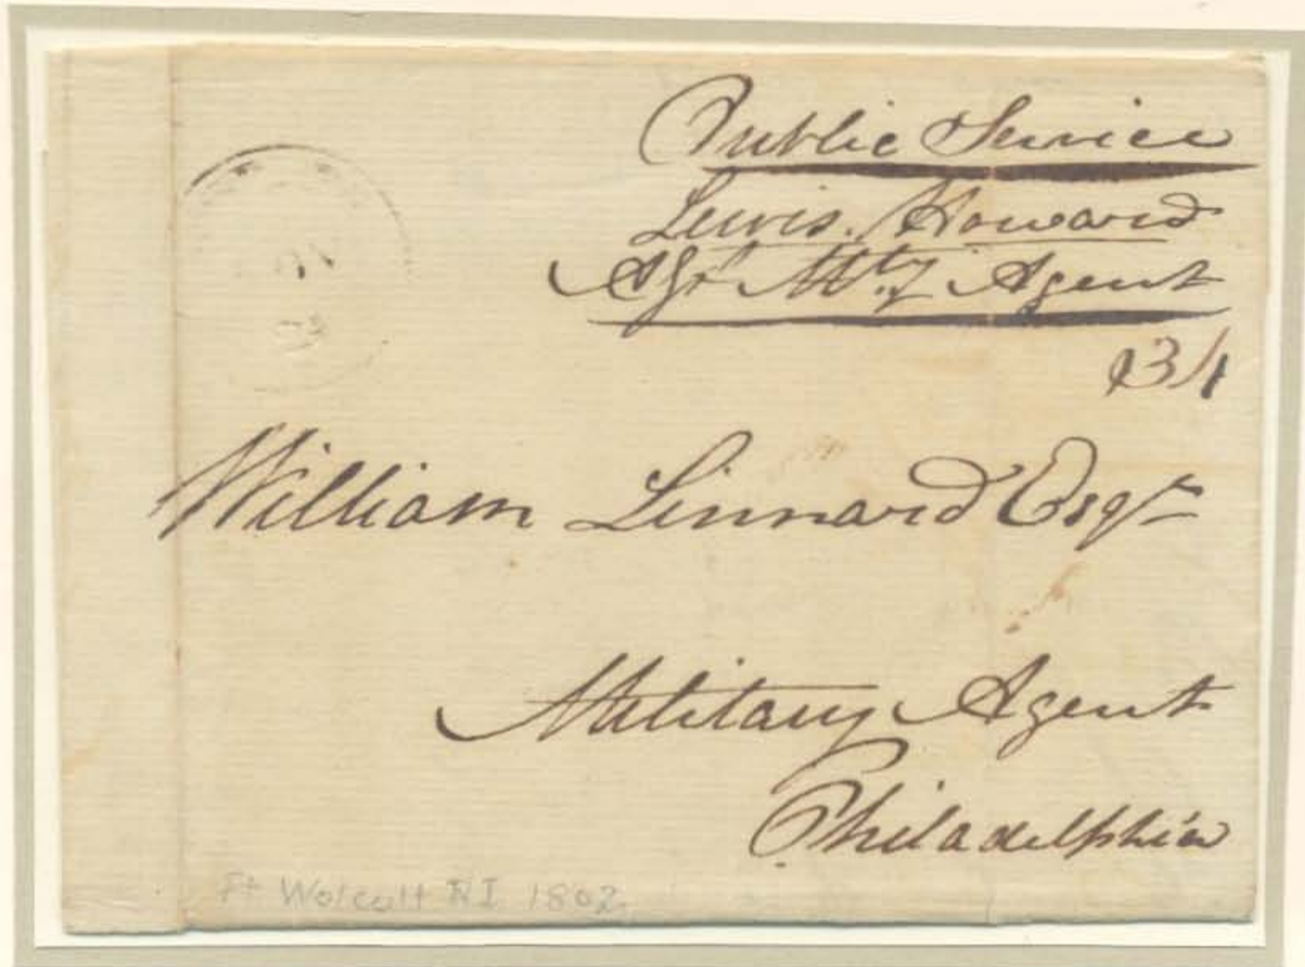 Public Service
Lewis. Howard
Mty Agent
William Linnard Esqr
Military Agent
Philadelphia
Ft Wolcott RI 1802